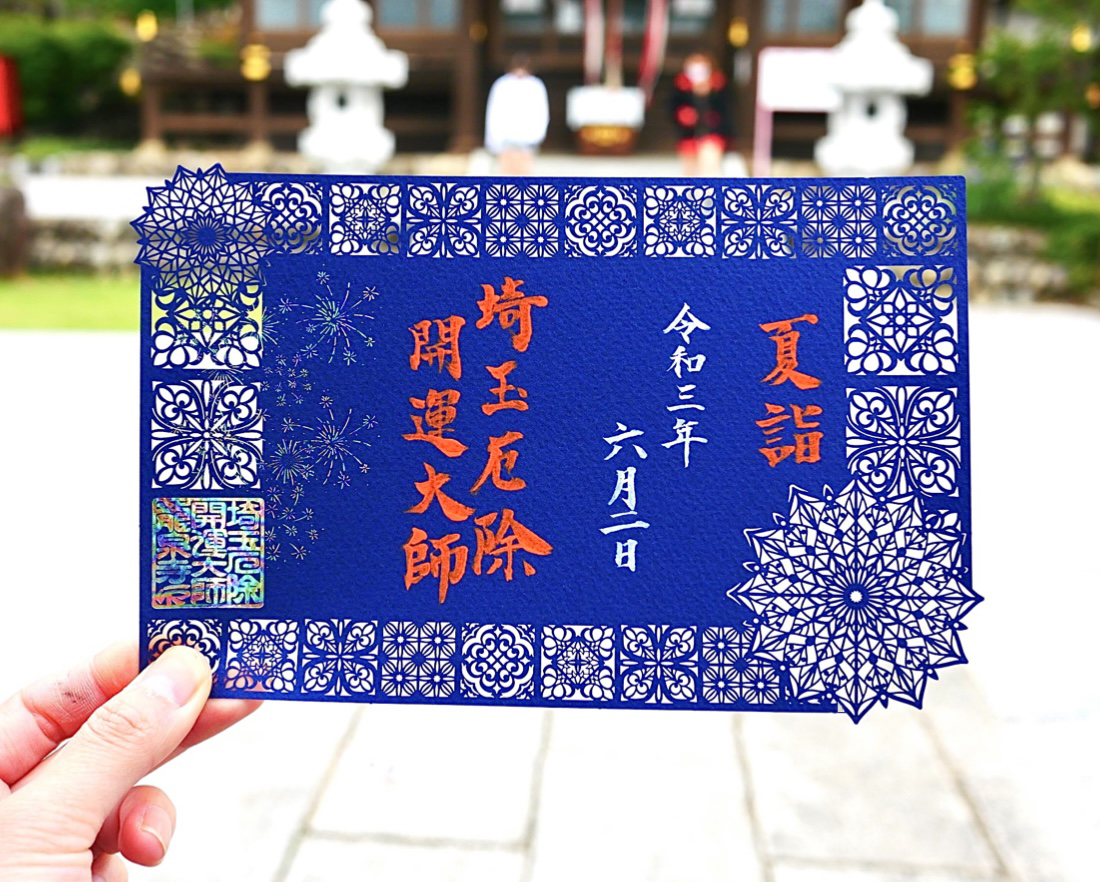 夏詣
令和三年
六月二日
埼玉厄除
開運大師
埼玉厄除
開運大師
龍泉寺印